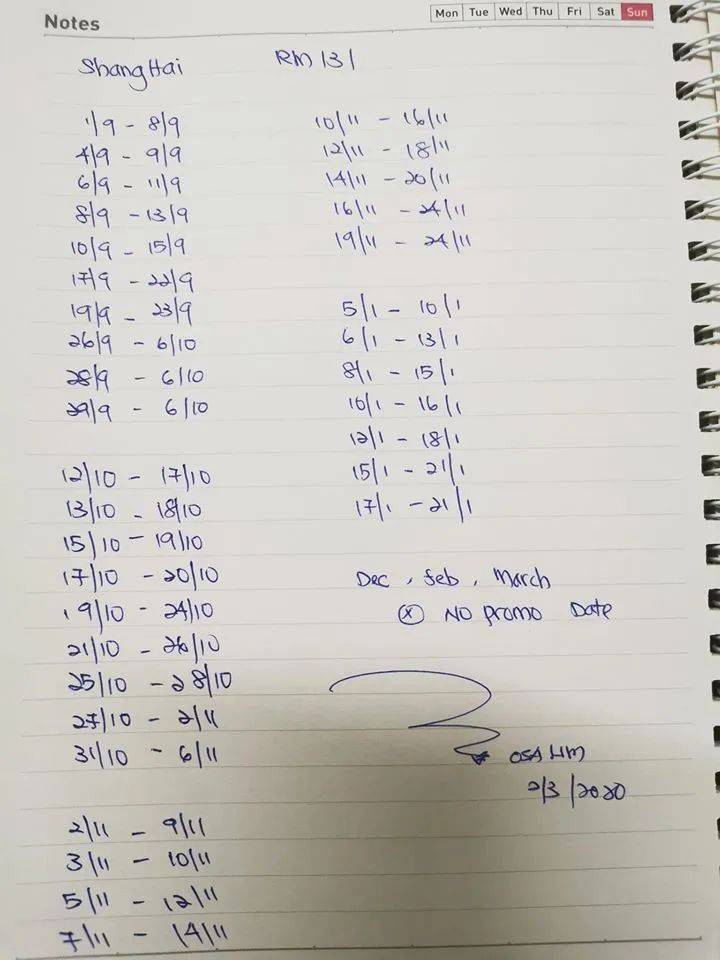 Notes
Mon Tue Wed Thu Fri Sat Sun
ShangHai
RM 131
1/9 - 8/9
4/9 - 9/9
6/9 - 11/9
8/9 - 13/9
10/9 - 15/9
17/9 - 22/9
19/9 - 23/9
26/9 - 6/10
28/9 - 6/10
29/9 - 6/10
12/10 - 17/10
13/10 - 18/10
15/10 - 19/10
17/10 - 20/10
19/10 - 24/10
21/10 - 26/10
25/10 - 28/10
27/10 - 2/11
31/10 - 6/11
2/11 - 9/11
3/11 - 10/11
5/11 - 12/11
7/11 - 14/11
10/11 - 16/11
12/11 - 18/11
14/11 - 20/11
16/11 - 24/11
19/11 - 24/11
5/1 - 10/1
6/1 - 13/1
8/1 - 15/1
10/1 - 16/1
12/1 - 18/1
15/1 - 21/1
17/1 - 21/1
Dec, feb, March
ⓧ NO promo Date
2/3/2020